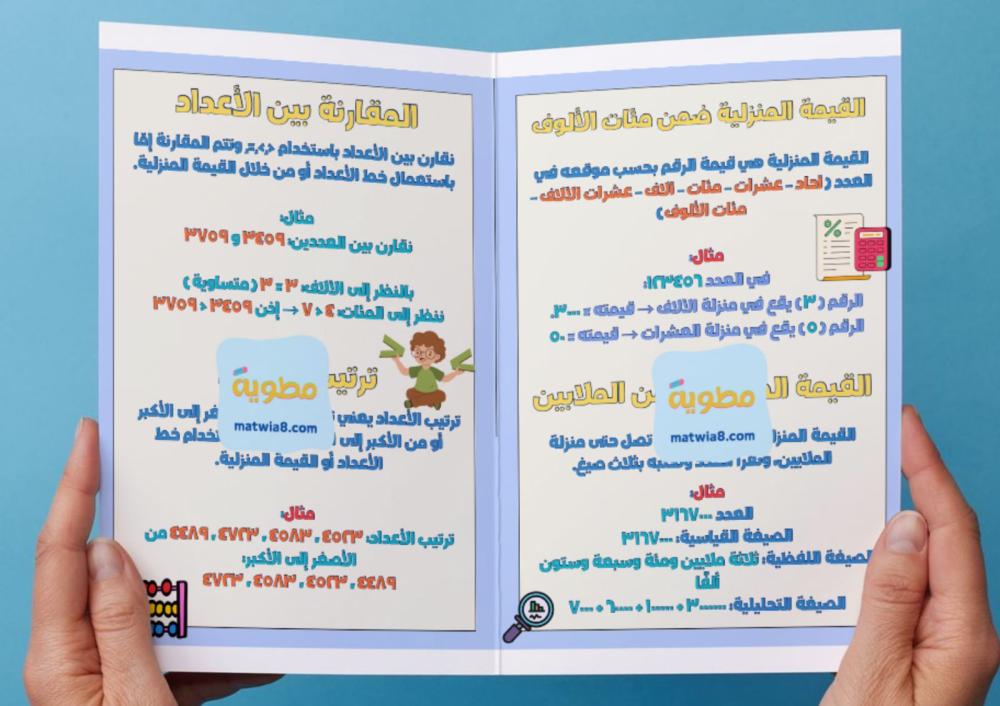 القيمة المنزلية ضمن مئات الألوف
القيمة المنزلية هي قيمة الرقم بحسب موقعه في
العدد (احاد – عشرات – مئات – الاف – عشرات الالاف –
مئات الألوف)
مثال:
في العدد ١٢٣٤٥٦:
الرقم (٣) يقع في منزلة الالاف → قيمته = ٣٠٠٠.
الرقم (٥) يقع في منزلة العشرات → قيمته = ٥٠
القيمة ن الملايين
القيمة تصل حتى منزلة
الملايين، بثلاث صيغ.
مثال:
العدد ٣١٦٧٠٠٠
الصيغة القياسية: ٣١٦٧٠٠٠
الصيغة اللفظية: ثلاثة ملايين ومئة وسبعة وستون
ألفًا
الصيغة التحليلية: ٣٠٠٠٠٠٠ + ١٠٠٠٠٠ + ٦٠٠٠٠ + ٧٠٠٠
مطوية
matwia8.com
المقارنة بين الأعداد
نقارن بين الأعداد باستخدام >,<,=, وتتم المقارنة إمّا
باستعمال خط الأعداد أو من خلال القيمة المنزلية.
مثال:
نقارن بين العددين: ٣٤٥٩ و ٣٧٥٩
بالنظر إلى الالاف: ٣ = ٣ (متساوية)
ننظر إلى المئات: ٤ < ٧ → إذن ٣٤٥٩ < ٣٧٥٩
ترتيب
ترتيب الأعداد يعني إلى الأكبر
أو من الأكبر إلى خط
الأعداد أو القيمة المنزلية.
مثال:
ترتيب الأعداد: ٤٥٢٣ , ٤٥٨٣ , ٤٧٢٣ , ٤٤٨٩ من
الأصغر إلى الأكبر:
٤٤٨٩ , ٤٥٢٣ , ٤٥٨٣ , ٤٧٢٣
مطوية
matwia8.com